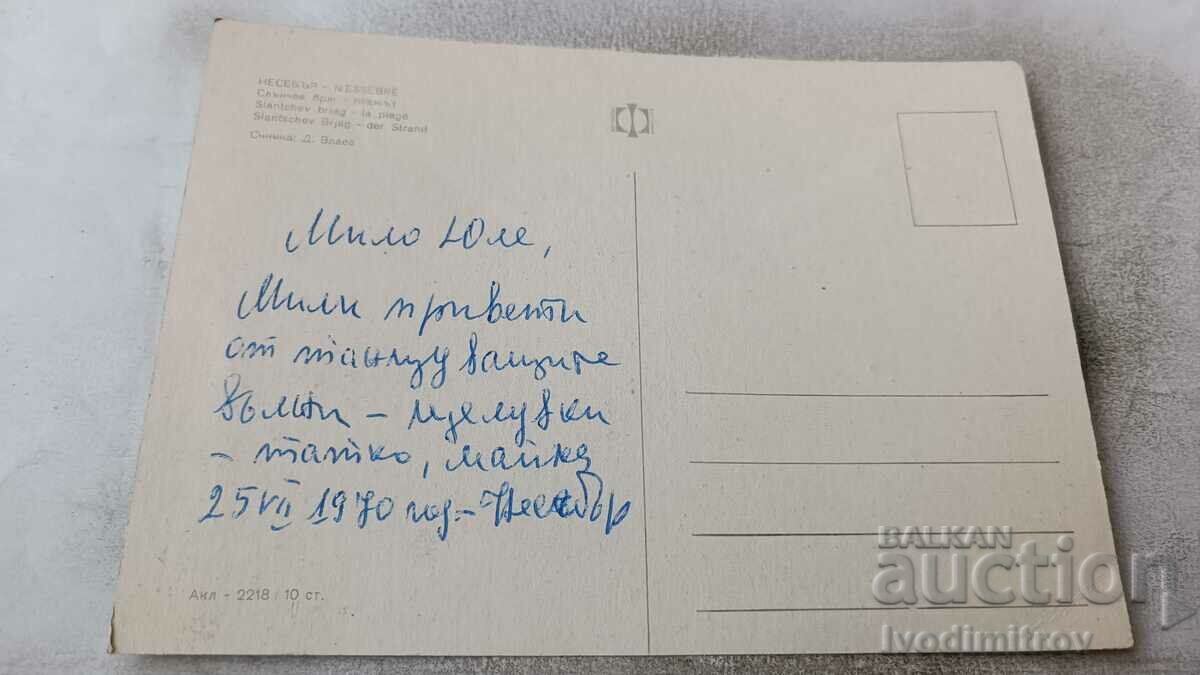 НЕСЕБЪР - NESSEBRE
Слънчев бряг - плажът
Slantchev briag - la plage
Slantschev Brjag - der Strand
Снимка: Д. Власо
Мило Юле,
Мили привети
от танцуващите
вълни - целувки
- татко, майка
25 VII 1970 год. - Несебър
Акл - 2218 / 10 ст.
BALKAN
auction
Ivodimitrov